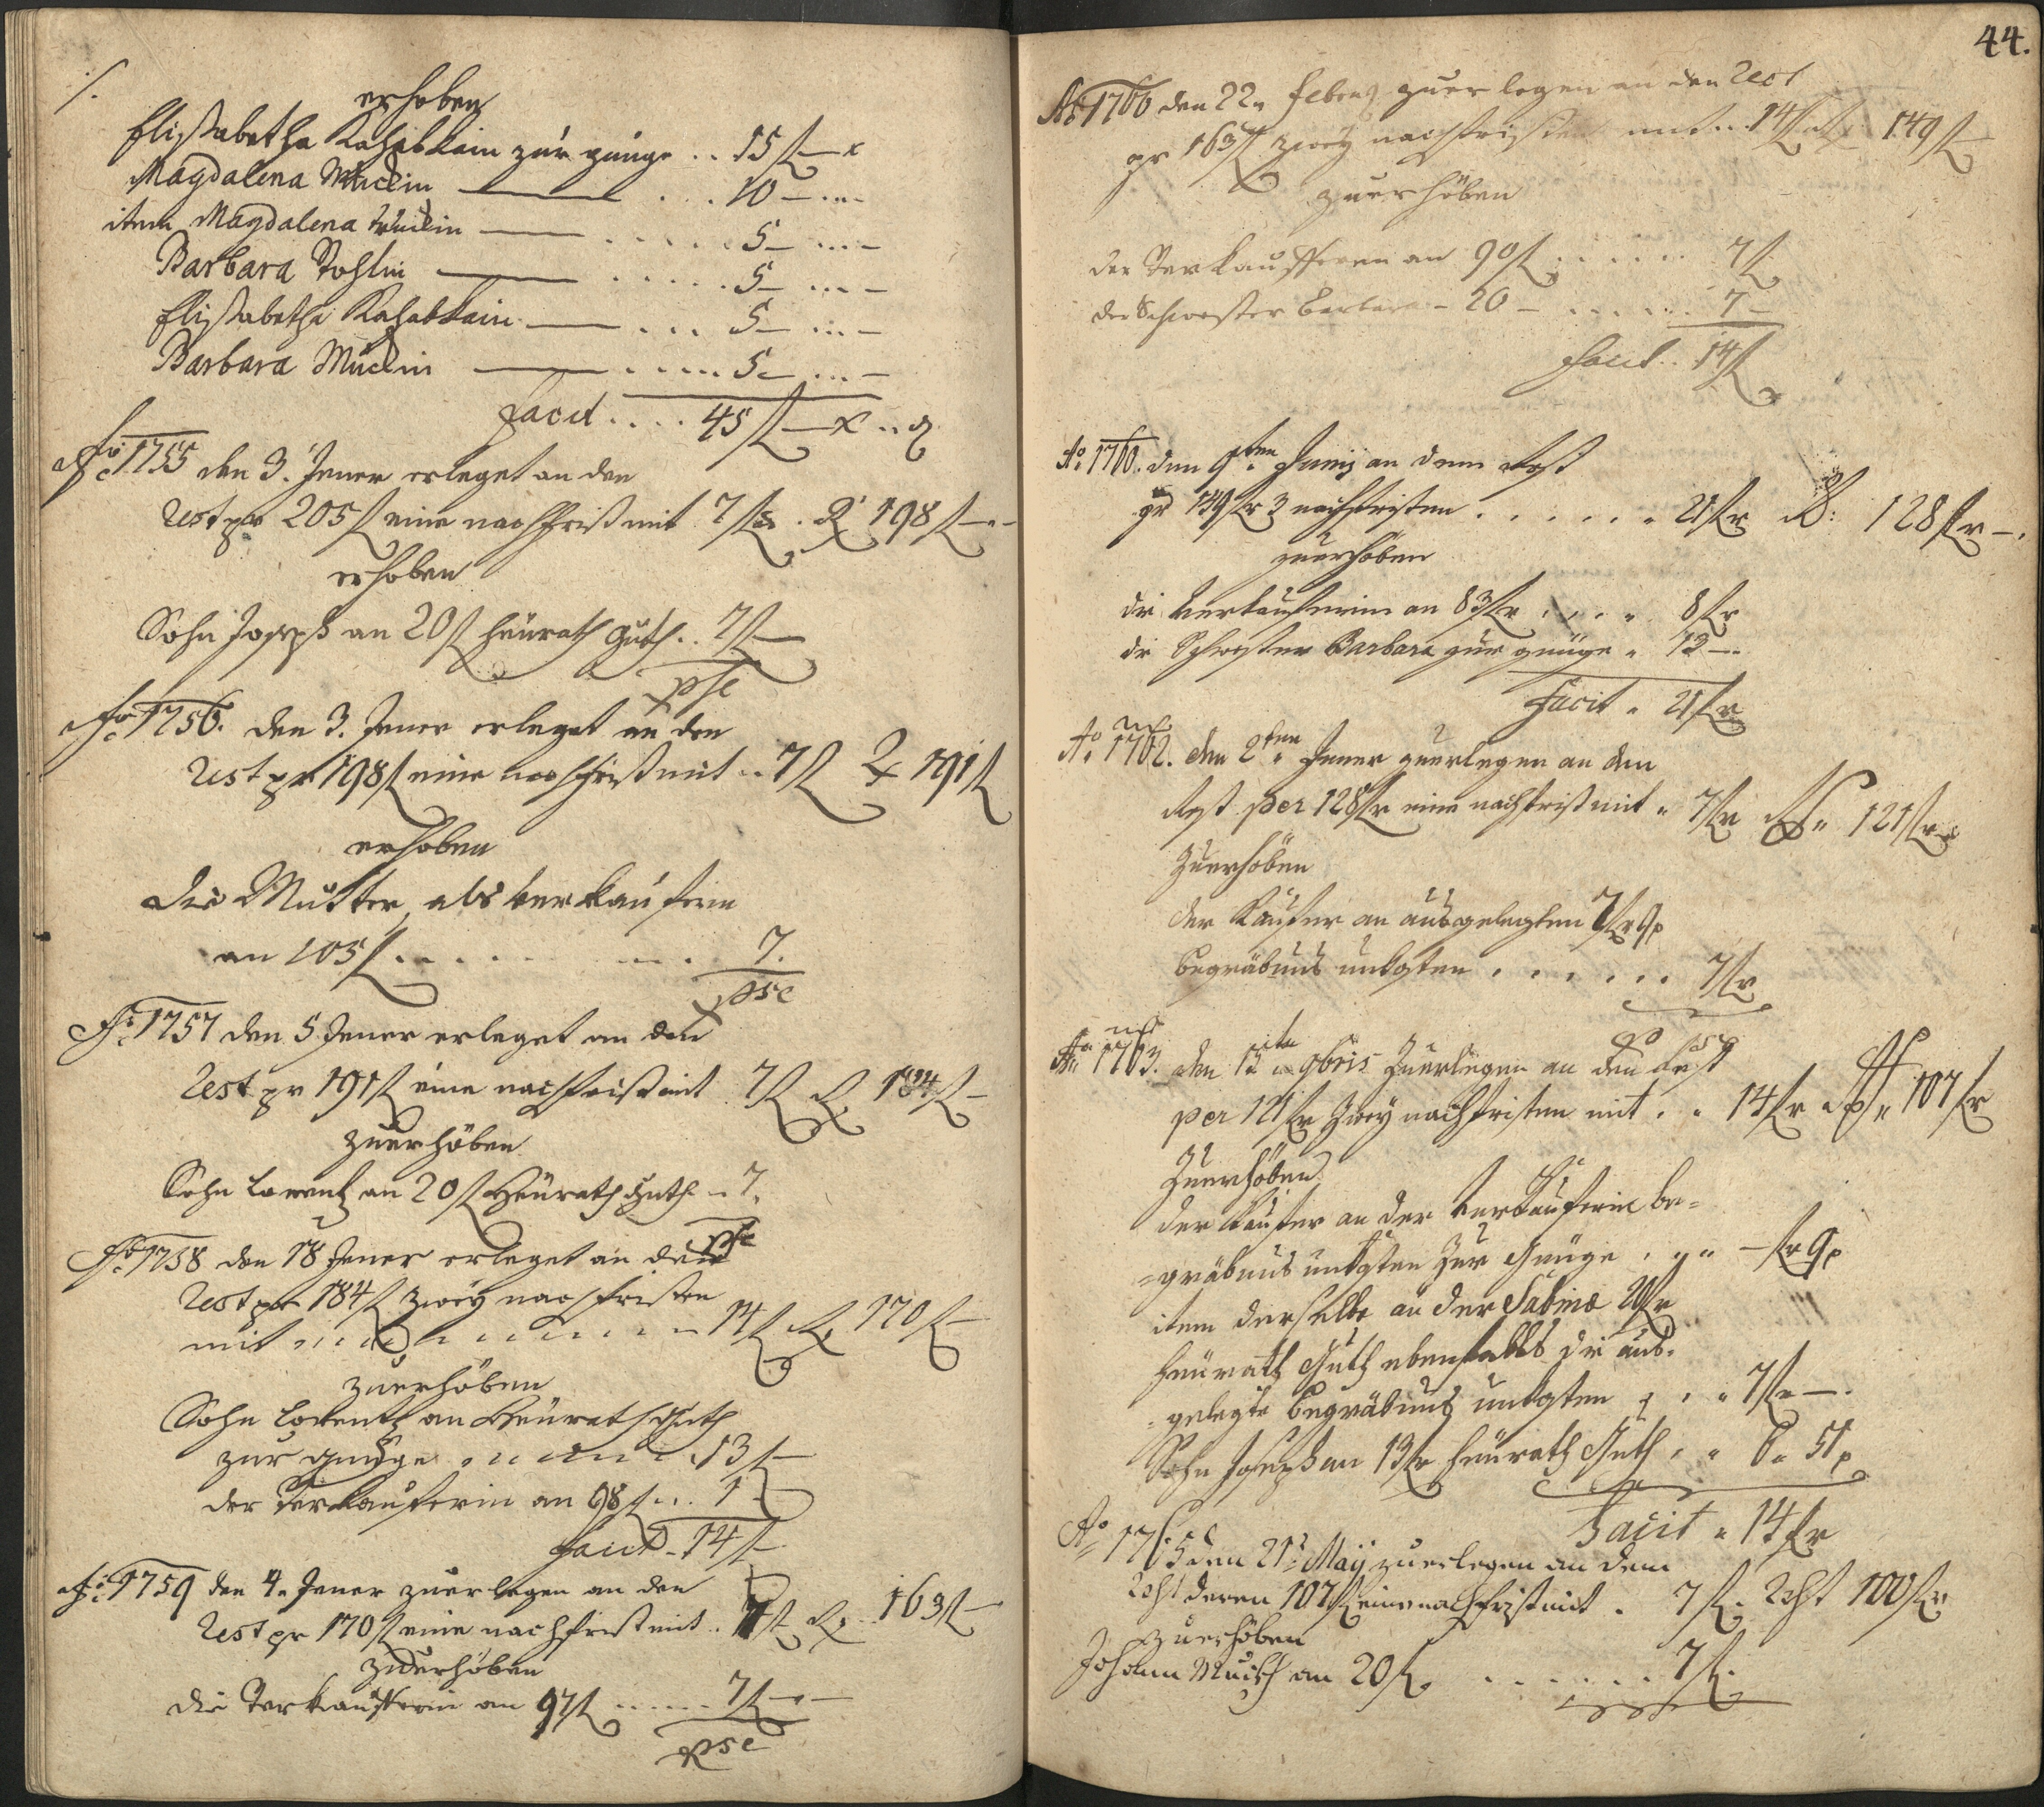 ./.
erhoben
Elisabetha zur genüge .. 15 f — x
Magdalena Mücklin — . . . 10 — ... —
item Magdalena Mücklin — . . . . . 5 — ... —
Barbara — . . . . . 5 — ... —
Elisabetha — . . . 5 — ... —
Barbara Mücklin — . . . . . 5 — ... —
Facit . . . . 45 f — x ..
Ao 1755 den 3. Jener erleget an den
Rest pr 205 f eine nachfrist mit 7 f . R 198 f —
erhoben
Sohn Joseph an 20 f Heurath Guth . . 7 f —
pse
Ao 1756. den 3. Jener erleget an den
Rest pr 198 f eine nachfrist mit .. 7 f R 191 f
erhoben
die Mutter als verkauferin
an 105 f . . . . . . . 7.
pse
Ao 1757 den 5 Jener erleget an den
Rest pr 191 f eine nachfrist mit 7 f R 184 f —
zuerhöben
Sohn Lorentz an 20 f Heurath Guth .. 7.
pse
Ao 1758 den 18 Jener erleget an den
Rest pr 184 f zwey nachfristen
mit . . . . . . . . 14 f R 170 f —
zuerhöben
Sohn Lorentz an Heurath Guth
zur genüge . . . . . 13 f —
der Verkauferin an 98 f ... 1 —
Facit . 14 f —
Ao 1759 den 4. Jener zuerlegen an den
Rest pr 170 f eine nachfrist mit . 7 f R 163 f —
zuerhöben
die Verkaufferin an 97 f ...... 7 f — —
pse
44.
Ao 1760 den 22. zuerlegen an den Rest
pr 163 f zwey nachfristen mit ... 14 f R 149 f —
zuerhöben
der Verkaufferen an 90 f . . . . . . 7 f
der Schwester Barbara — 20 — . . . . . . 7 —
Facit .. 14 f
Ao 1760. den 9ten Junij an dem Rest
pr 149 fr 3 nachfristen . . . . . . 21 fr R: 128 fr —.
zuerhöben
die Verkauferin an 83 fr . . . . 8 fr
die Schwester Barbara zur genüge . 13 —
Facit . 21 fr
Ao 1762. den 2ten Jener zuerlegen an den
Rest per 128 fr eine nachfrist mit . 7 fr R 121 fr
Zuerhöben
der Käufer an ausgelegten 7 fr 9 p
begräbnus unkosten . . . . . . 7 fr
Ao 1763. den 9bris Zuerlegen an den Rest
per 121 fr Zwey nachfristen mit . . 14 fr R 107 fr
Zuerhöben
der Käufer an der Verkäuferin be=
=gräbnus unkosten Zur Genüge . . . — fr 9 p
item derselbe an der Sabina 20 fr
Heurath Guth ebenfalls die aus=
=gelegte begräbnus unkosten . . . 7 fr —.
Sohn Joseph an 13 fr Heurath Guth . . 6. 51 p
Facit . 14 fr
Ao 1765 den 21t Maij zuerlegen an dem
Rest deren 107 f eine nachfrist mit . 7 f. Rest 100 fr
zuerhöben
Johann Mück an 20 f . . . . . . 7 f.